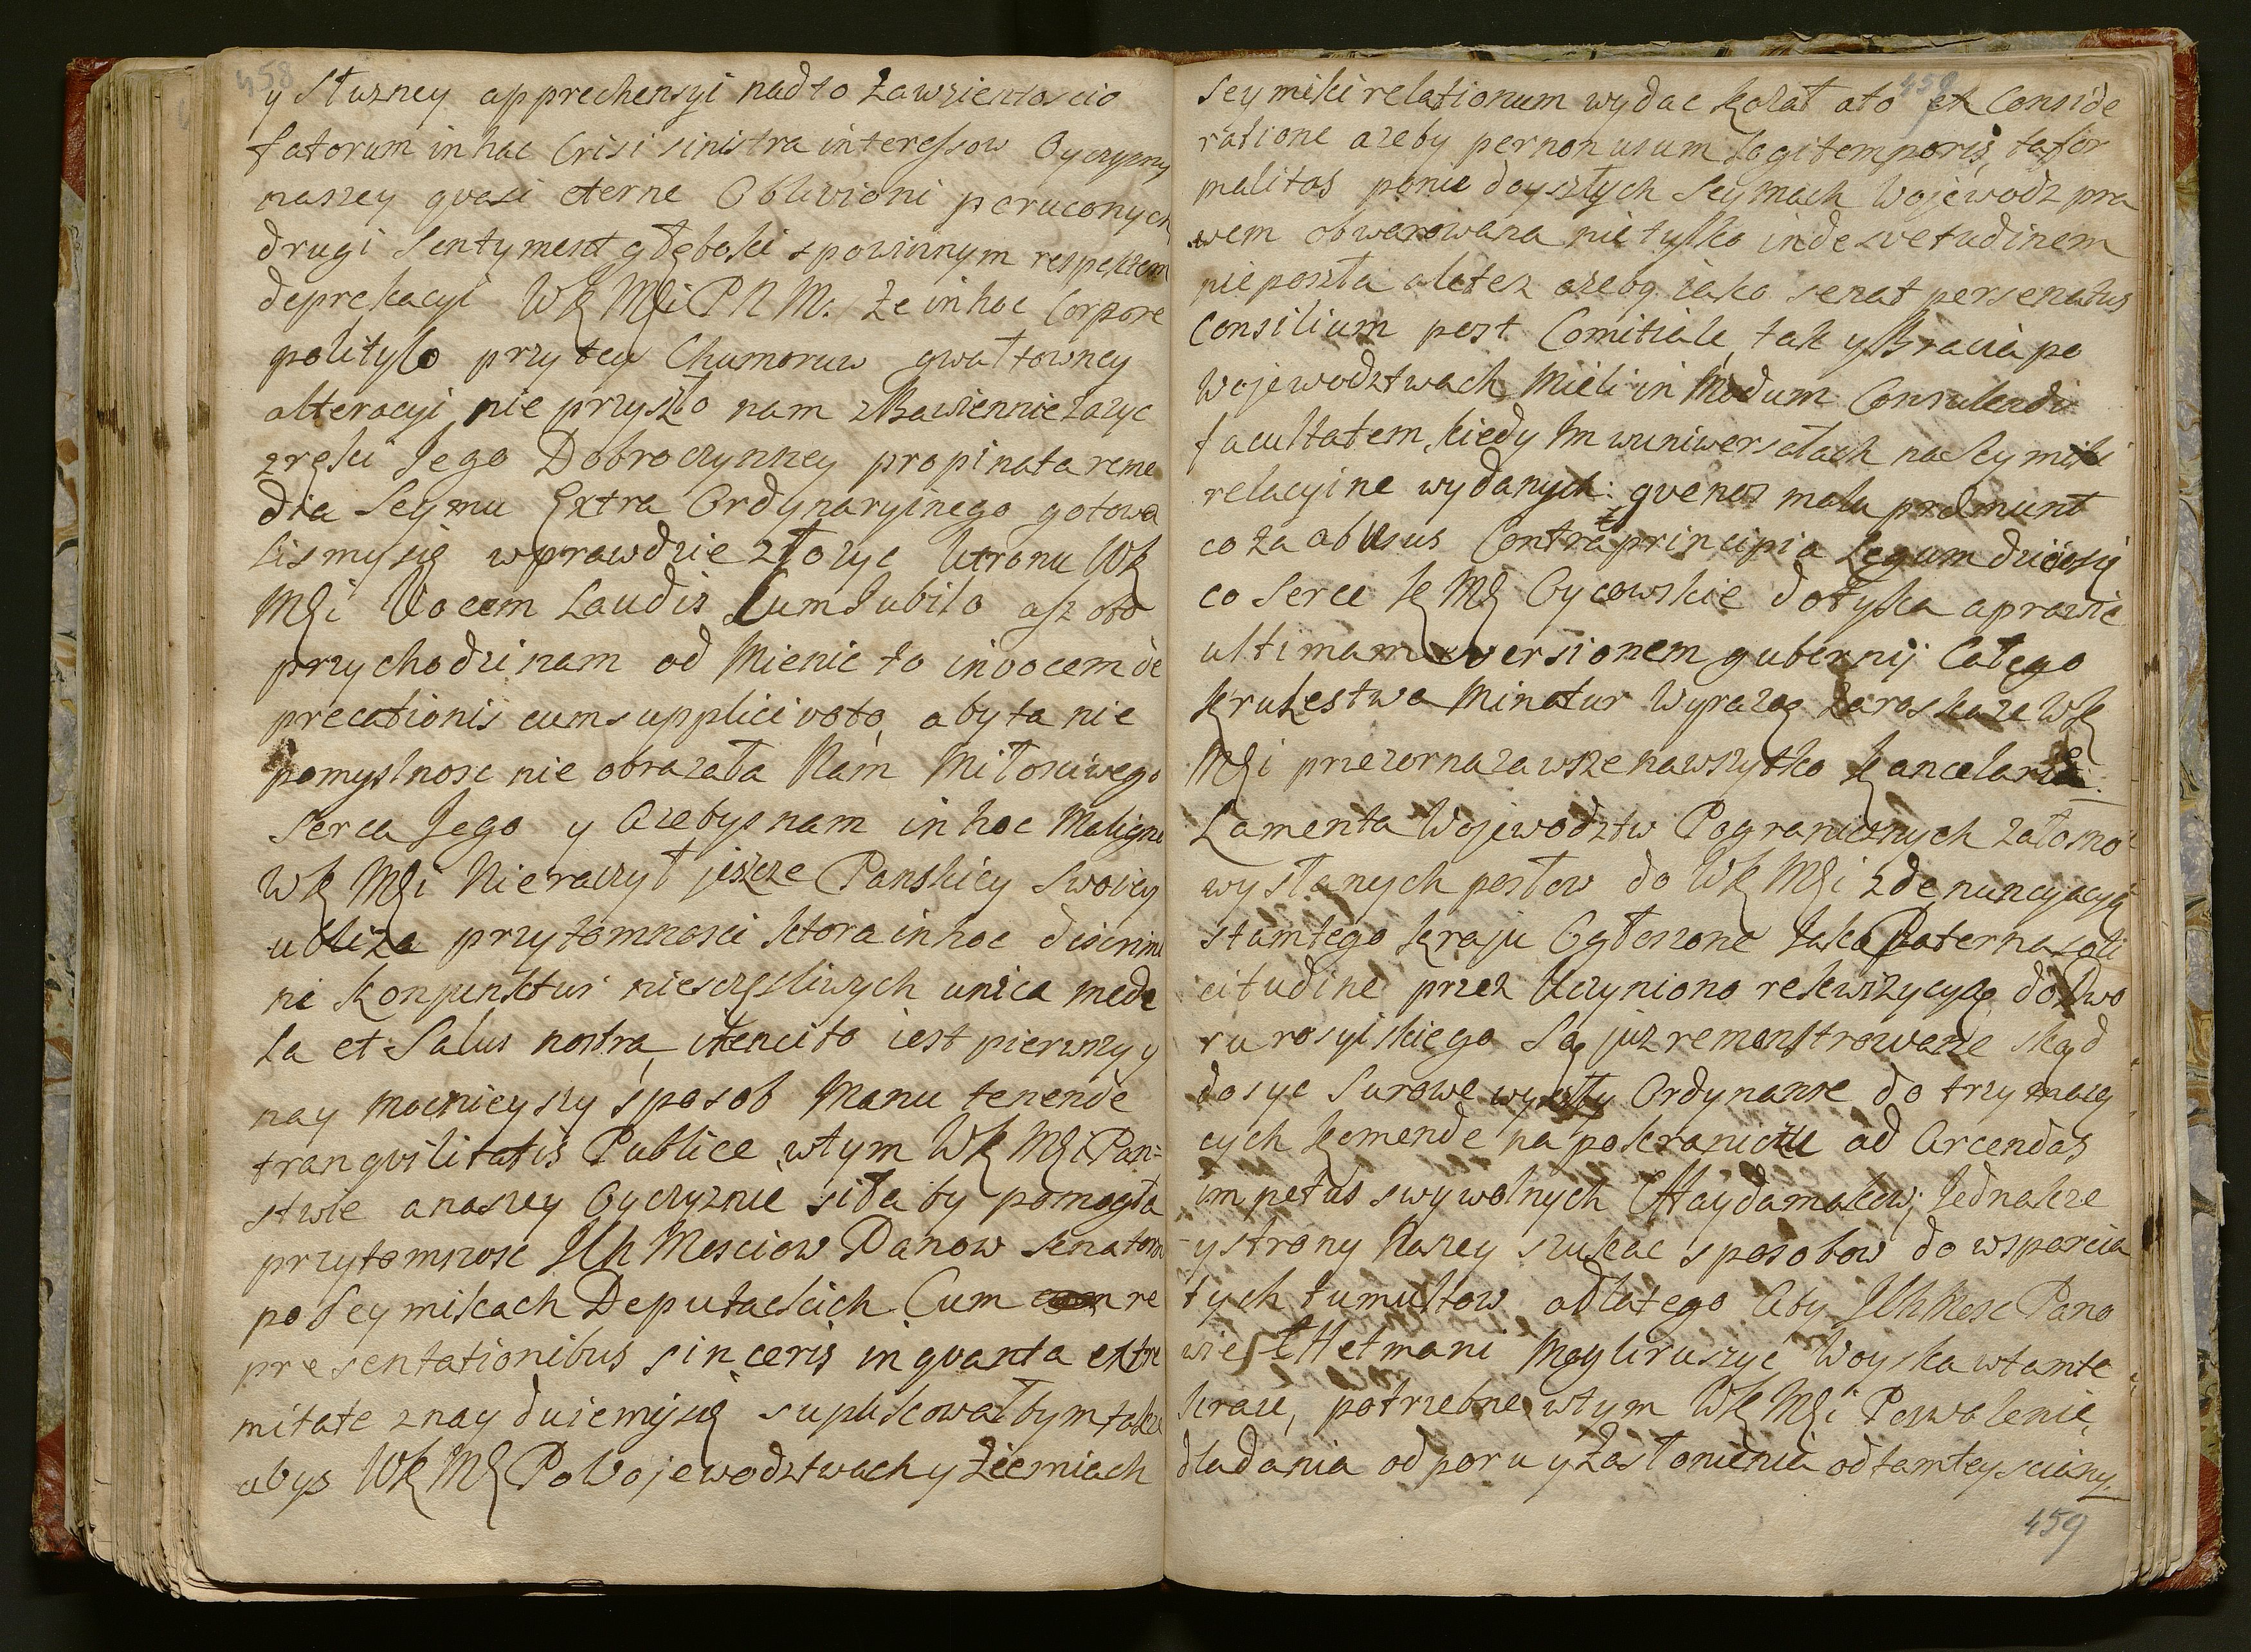 458
y słuzney apprehensyi nadto zawziętoscio
fatorum in hac Crisi sinistra interessow Oyczyzny
naszey qvasi eterne Oblivioni poruconych
drugi Sentyment głęboki z powinnym respektem
deprekacyi WK Mci P N M. Ze in hoc Corpore
polityko przy tey Chumorow gwałtowney
alteracyi nie przyszło nam zbawiennie zazyc
z ręki Jego Dobroczynney propinata reme
dia Seymu Extra Ordynaryinego gotowa
lismy się wprawdzie złozyc Utronu WK
Mci Vocem Laudis Cum Jubilo asz oto
przychodzi nam odmienic to in vocem de
precationis cum supplici voto, aby ta nie
pomyslnosc nie obrazała Nam Miłosciwego
Serca Jego y Azebys nam in hoc Maligno
WK Mci Nieraczył jescze Panskiey Swoiey
ubliza przytomnosci ktora in hoc discrimi
ni Konjunktur niesczęsliwych unica mede
la et Salus nostra, iten ci to iest pierwszy y
nay mocnieyszy sposob Manu tenende
tranqvilitatis Publice wtym WK Mci Pan=
stwie a naszey Oyczyznie siła by pomogła
przytomnosc Ich Mosciow Panow Senatorow
po Seymikach Deputackich Cum re
presentationibus sinceris in qvanta extre
mitate znayduiemy się suplikowałbym takze
abys WK Mc Po Wojewodztwach y Ziemiach
459
Seymiki relationum wydac kozał ato ex Conside
ratione azeby per non usum Legi temporis, ta for
malitas ponie doyszłych Seymach Wojewodz pra
wem obwarowana nie tylko in desvetudinem
nie poszła ale tez azeby iako senat per senatus
Consilium post Comitiale, tak y Bracia po
Wojewodztwach Mieli in Modum Consulendi
facultatem, kiedy Im wuniwersałach na Seymiki
relacyine wydanych: qve nos mala premunt
co za abusus Contra principia Legum dzieie się
co Serce K Mc Oycowskie dotyka a prawie
ultimam eversionem gubernij Całego
Krulestwa Minatur Wyrazac zaroskaze WK
Mci przezorna zawsze na wszytko Kancelaria.
Lamenta Wojewodztw Pogranicznych załosno
wysłanych posłow do WK Mci z denuncyacyą
stamtego Kraju Ogłoszone Jako Paterna soli
citudine przez Uczyniono rekwizycyą do Dwo
ru rosyiskiego Są juz remonstrowane skąd
dosyc Surowe wyszły Ordynanse do trzymaią
cych Komende na pokraniczu ad Arcendos
impetus swywolnych Haydamakow; Jednakze
y strony Naszey szukac sposobow do wsparcia
tych tumultow adlatego Aby Ich Mosc Pano
wie Hetmani Mogli ruszyć Woyska wtamte
kraie, potrzebne wtym WK Mci Pozwolenie,
dladania odporu y Zasłonienia od tamtey sciany.
459